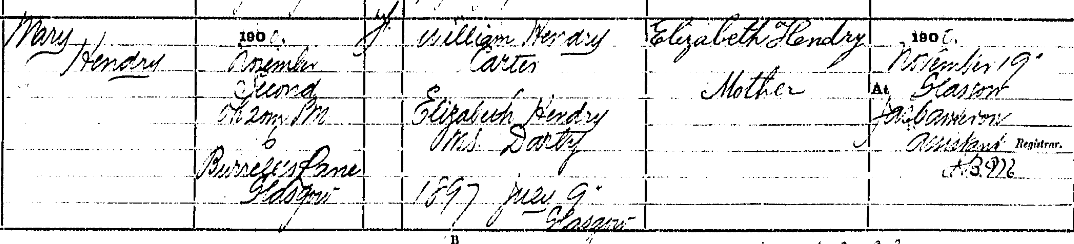 Mary
Hendry
1900.
November
Second
0h 20m PM
6
Burrell's Lane
Glasgow
F
William Hendry
Carter
Elizabeth Hendry
M.S. Darby
1897 July 9"
Glasgow
Elizabeth Hendry
Mother
1900.
November 19"
At Glasgow
Jas Cameron
Assistant Registrar.
B